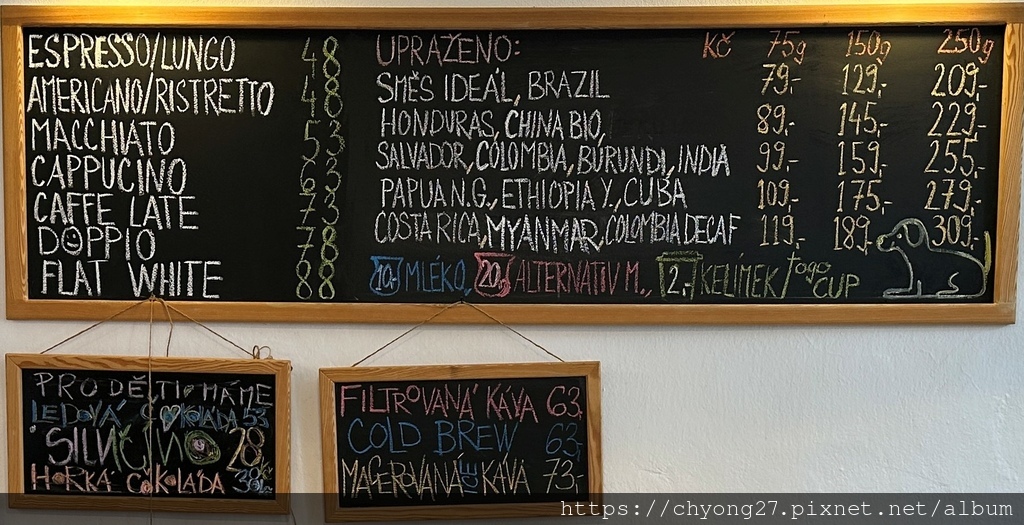 ESPRESSO/LUNGO 48
AMERICANO/RISTRETTO 48
MACCHIATO 53
CAPPUCINO 63
CAFFE LATE 73
DOPPIO 78
FLAT WHITE 88
UPRAŽENO: KČ 75g 150g 250g
SMĚS IDEÁL, BRAZIL 79,- 129,- 209,-
HONDURAS, CHINA BIO, 89,- 145,- 229,-
SALVADOR, COLOMBIA, BURUNDI, INDIA 99,- 159,- 255,-
PAPUA N.G., ETHIOPIA Y., CUBA 109,- 175,- 279,-
COSTA RICA, MYANMAR, COLOMBIA DECAF 119,- 189,- 309,-
10,- MLÉKO, 20,- ALTERNATIV M., 2,- KELÍMEK/togo CUP
PRO DĚTI MÁME
LEDOVÁ ČOKOLÁDA 53
SILNČÍNO 28
HORKÁ ČOKOLÁDA 38
FILTROVANÁ KÁVA 63,
COLD BREW 63,-
MACEROVANÁ ICE KÁVA 73,-
https://chyong27.pixnet.net/album